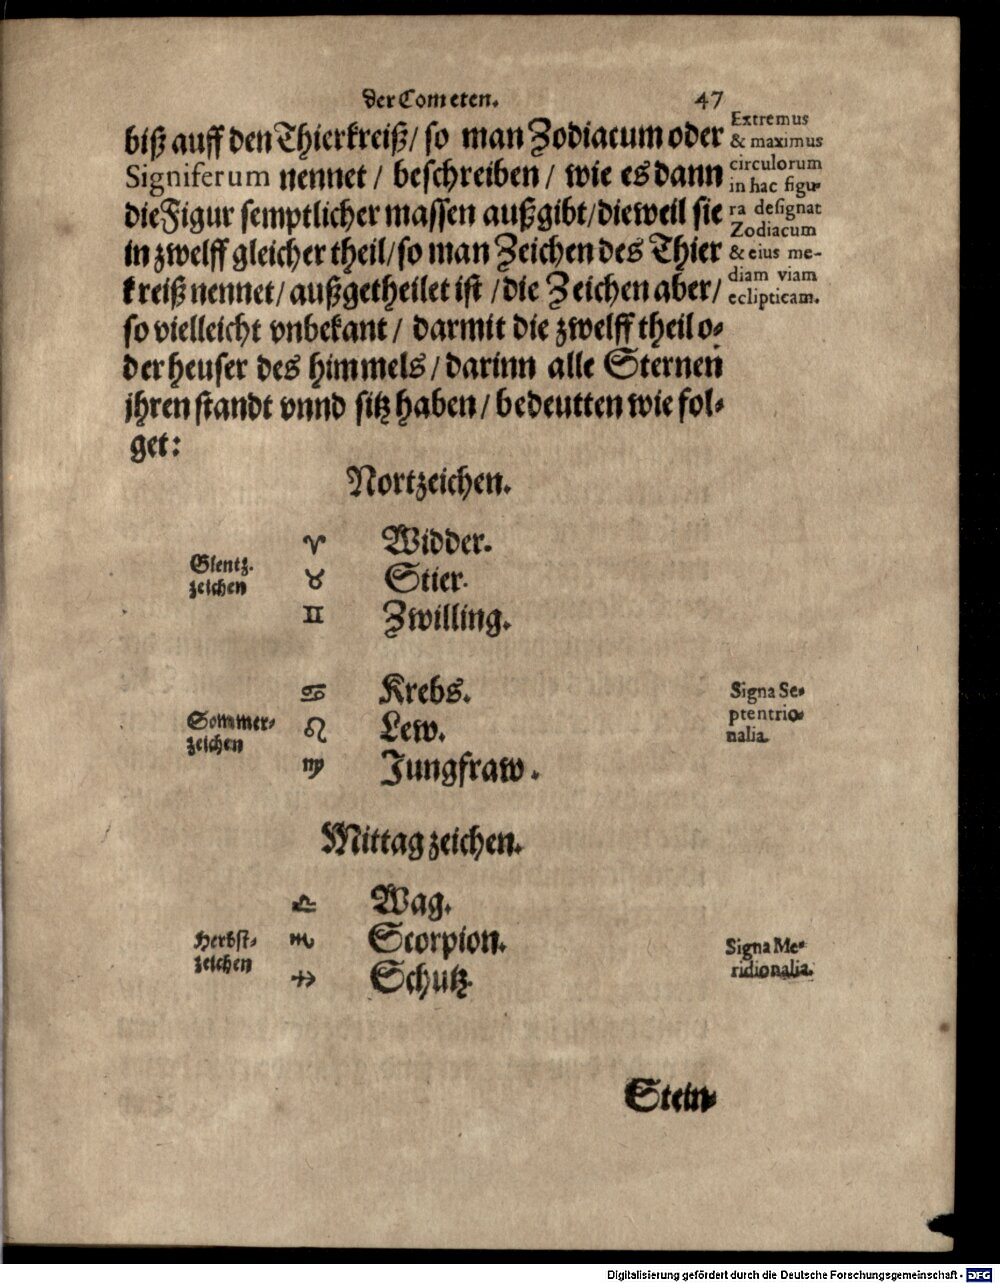 der Cometen. 47
biß auff den Thierkreiß/ so man Zodiacum oder
Signiferum nennet / beschreiben / wie es dann
die Figur semptlicher massen außgibt/dieweil sie
in zwelff gleicher theil/so man Zeichen des Thier
kreiß nennet/ außgetheilet ist /die Zeichen aber/
so vielleicht vnbekant / darmit die zwelff theil o-
der heuser des himmels / darinn alle Sternen
jhren standt vnnd sitz haben / bedeutten wie fol-
get:
Extremus
& maximus
circulorum
in hac figu-
ra designat
Zodiacum
& eius me-
diam viam
eclipticam.
Nortzeichen.
Glentz-
zeichen
♈ Widder.
♉ Stier.
♊ Zwilling.
Sommer-
zeichen
♋ Krebs.
♌ Lew.
♍ Jungfraw.
Signa Se-
ptentrio-
nalia.
Mittagzeichen.
Herbst-
zeichen
♎ Wag.
♏ Scorpion.
♐ Schutz.
Signa Me-
ridionalia.
Stein-
Digitalisierung gefördert durch die Deutsche Forschungsgemeinschaft - DFG